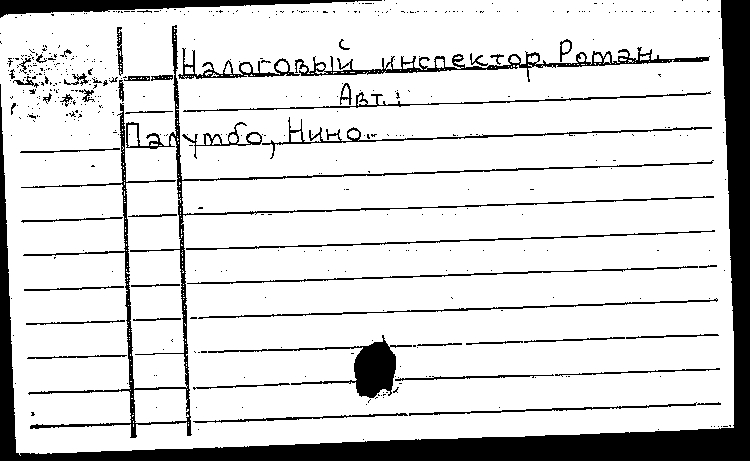 Налоговый инспектор. Роман.
Авт.:
Палумбо, Нино.